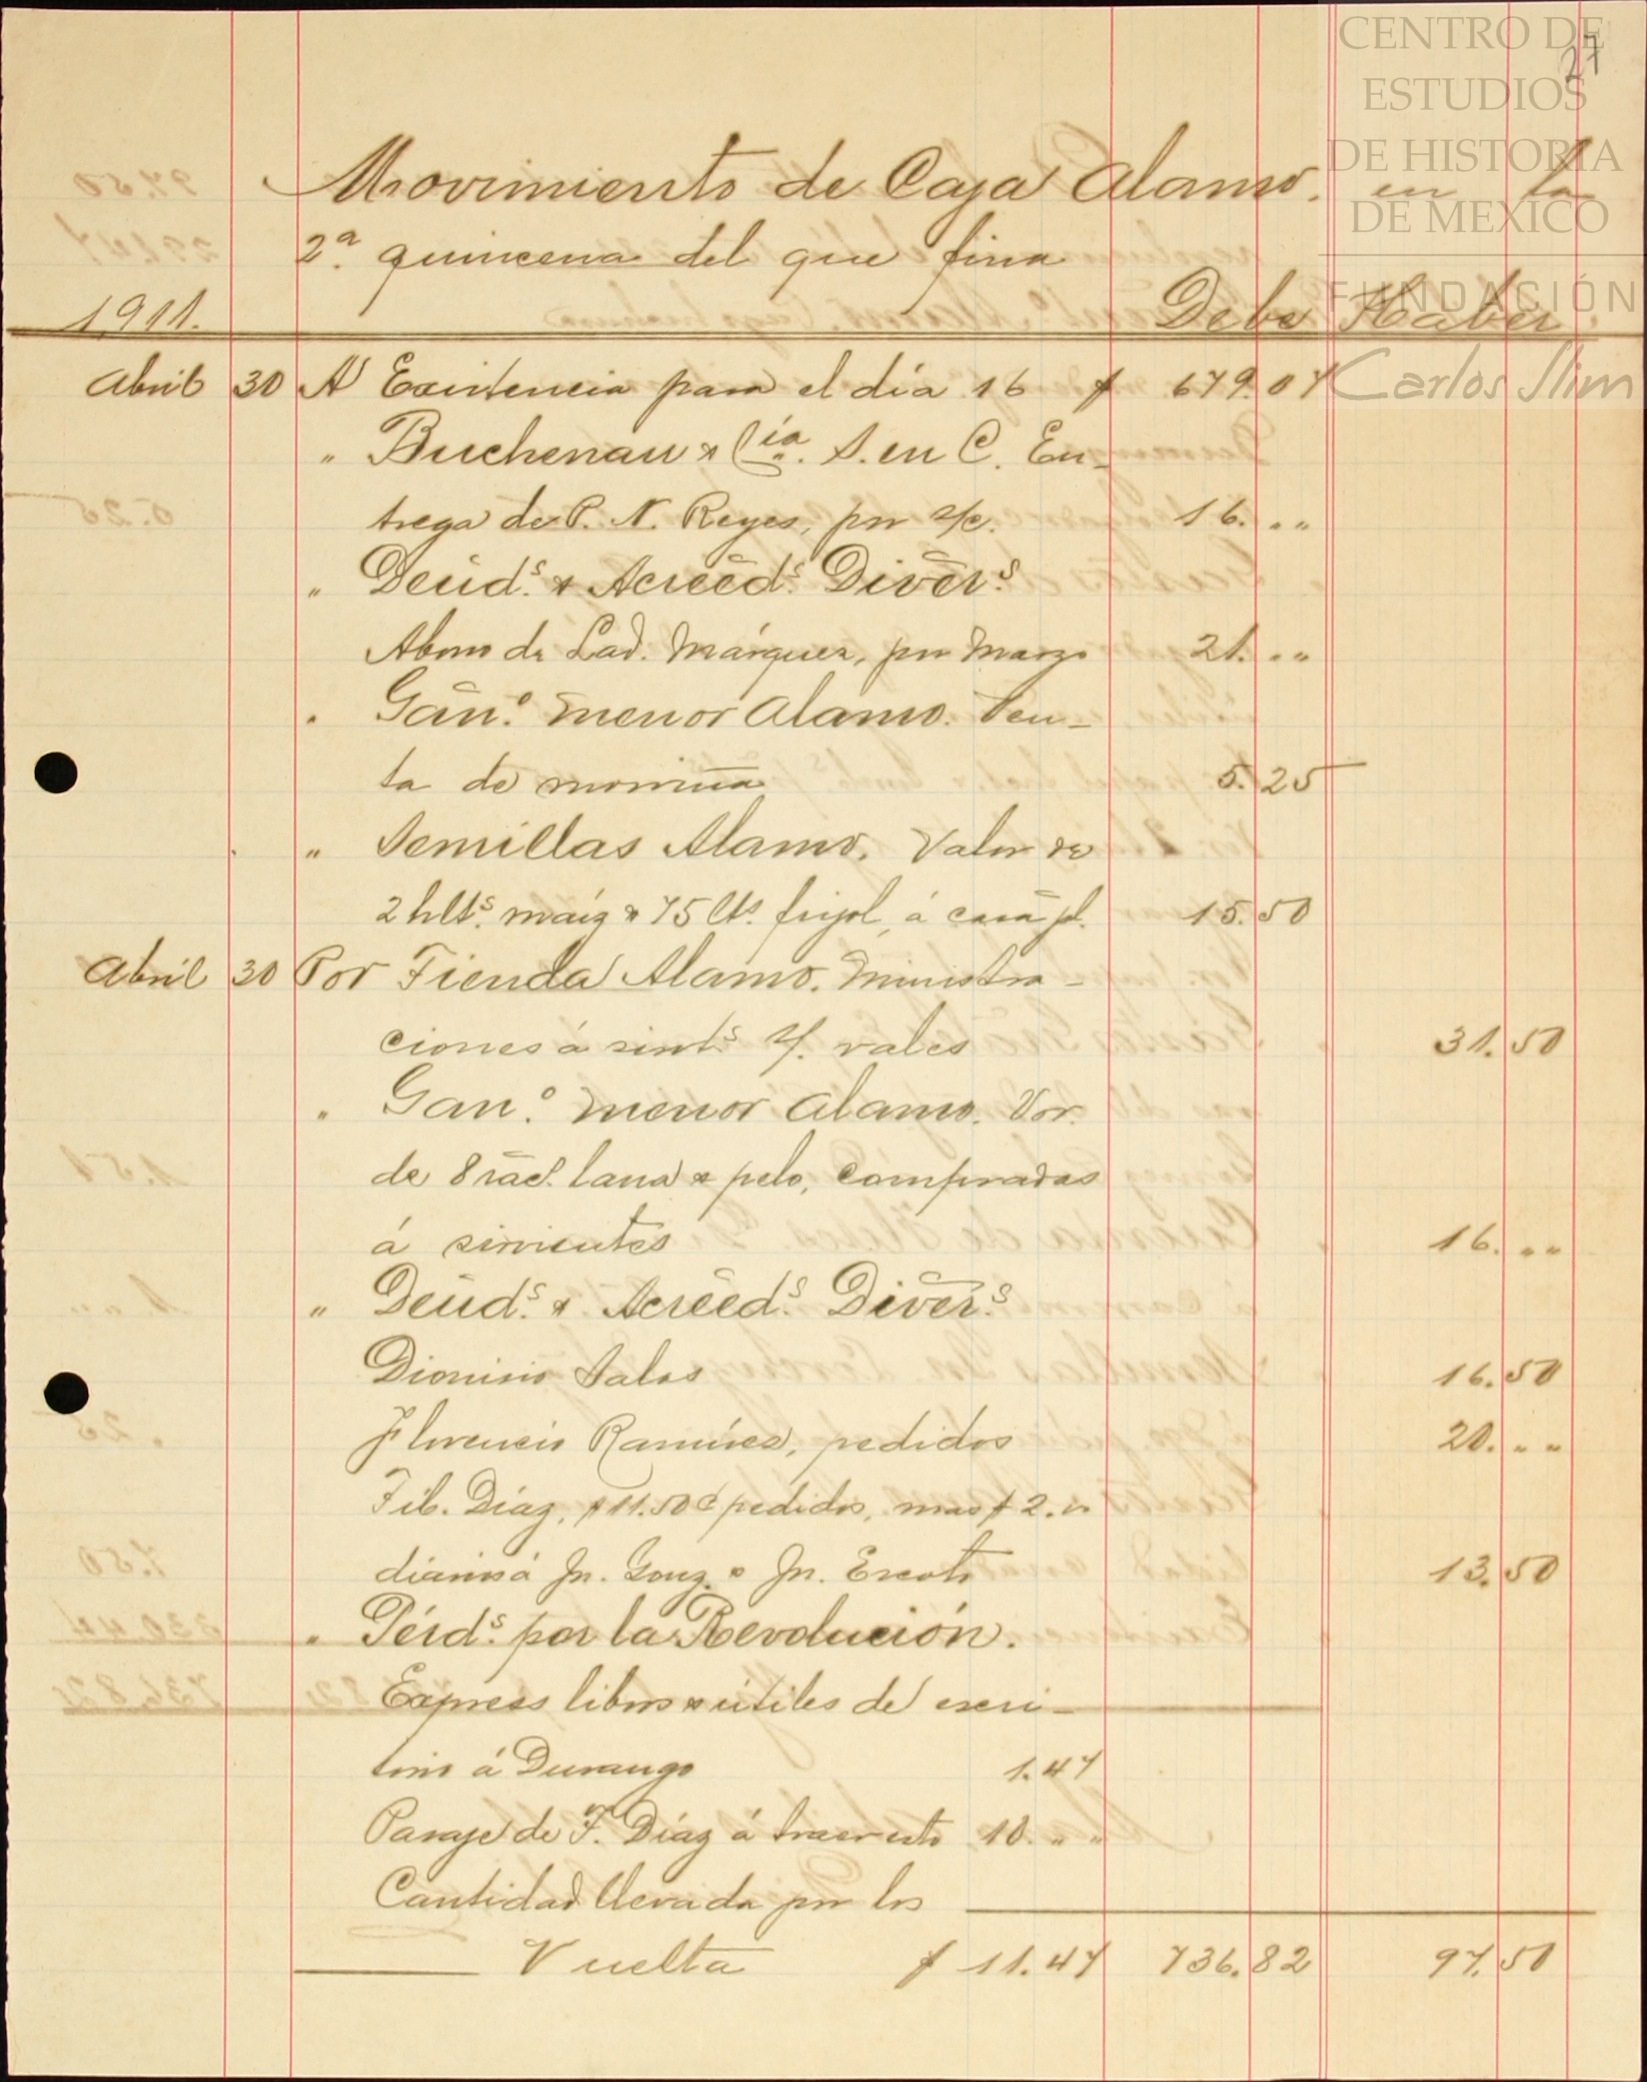 CENTRO DE
ESTUDIOS
DE HISTORIA
DE MEXICO
FUNDACIÓN
Carlos Slim
27
Movimiento de Caja Alamo. en la
2ª. quincena del que fina
1911. Debe Haber.
Abril 30 A Existencia para el día 16 $ 679.07
" Buchenau & Cía. S. en C. En-
trega de P. N. Reyes, por s/c. 16. ""
" Deud.s & Acreed.s Divers.
Abono de Lad. Márquez, por Marzo 21. ""
" Gan.o menor Alamo. Ven-
ta de 5.25
" Semillas Alamo. Valor de
2 hlts. maíz & 75 lts. frijol, á casa pl. 15.50
Abril 30 Por Tienda Alamo. Ministra-
ciones á sirvts. s/. vales 31.50
" Gan.o menor Alamo. Vor.
de 8 lana & pelo, compradas
á sirvientes 16. ""
" Deud.s & Acreed.s Divers.
Dionisio Salas 16.50
Florencio Ramírez, pedidos 20. ""
Tib. Díaz, $11.50 ¢ pedidos, mas $2. "
diarios á Jn. Gonz. & Jn. Escoto 13.50
" Pérds. por la Revolución.
Express libros & útiles de escri-
torio á Durango 1.47
Pasaje de T. Díaz á traer esto 10. ""
Cantidad llevada por los
Vuelta $ 11.47 736.82 97.50